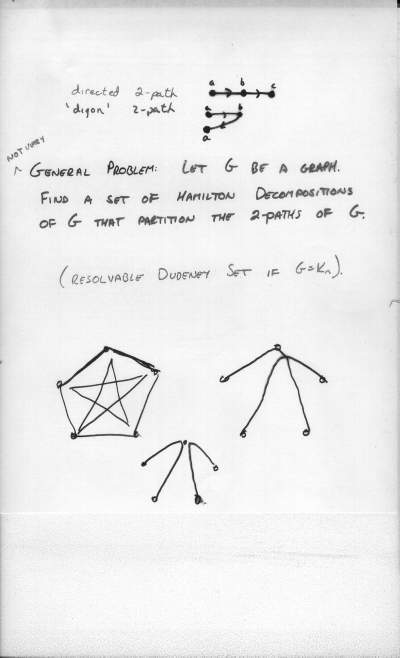 directed 2-path a b c
'digon' 2-path a b
a
NOT VERY
^ GENERAL PROBLEM: LET G BE A GRAPH.
FIND A SET OF HAMILTON DECOMPOSITIONS
OF G THAT PARTITION THE 2-PATHS OF G.
(RESOLVABLE DUDENEY SET IF G=Kn).